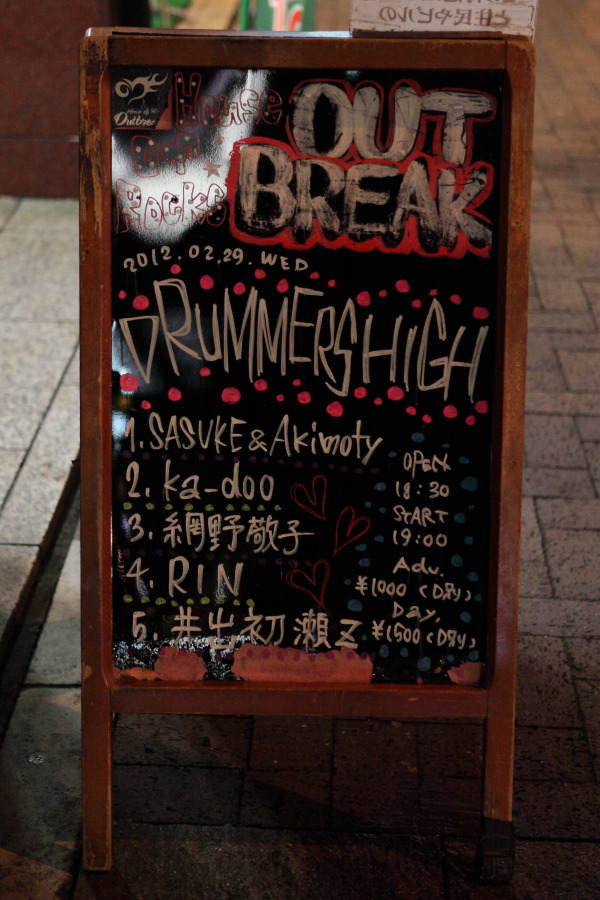 と住民やビルの
House of
Rocks
OUT
BREAK
2012.02.29.WED
DRUMMERSHIGH
1. SASUKE & Akimoty
2. ka-doo
3. 網野敬子
4. RIN
5. 井出初瀬Z
OPEN
18:30
START
19:00
Adv.
¥1000（D別）
Day.
¥1500（D別）